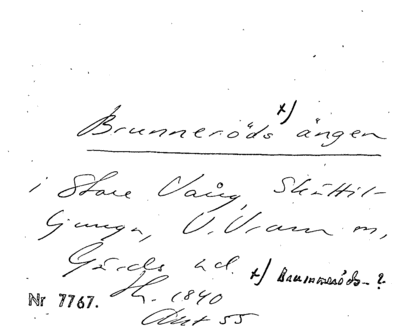 Brunneröds x) ängen
i Store Vång, Skättil-
ljunga, V. Vram m,
Gärds hd. x) Brunnersröds- ?
Nr 7767. Sk. 1840
Akt 55